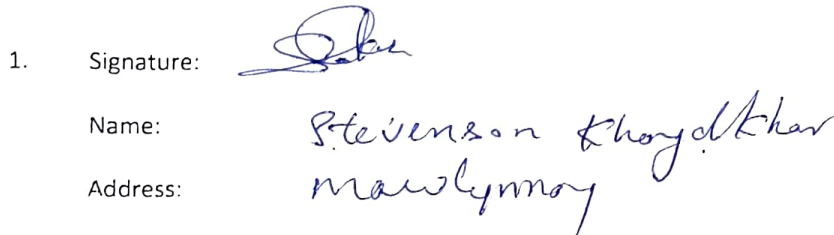 1. Signature:
Name: Stevenson Khongdkhar
Address: